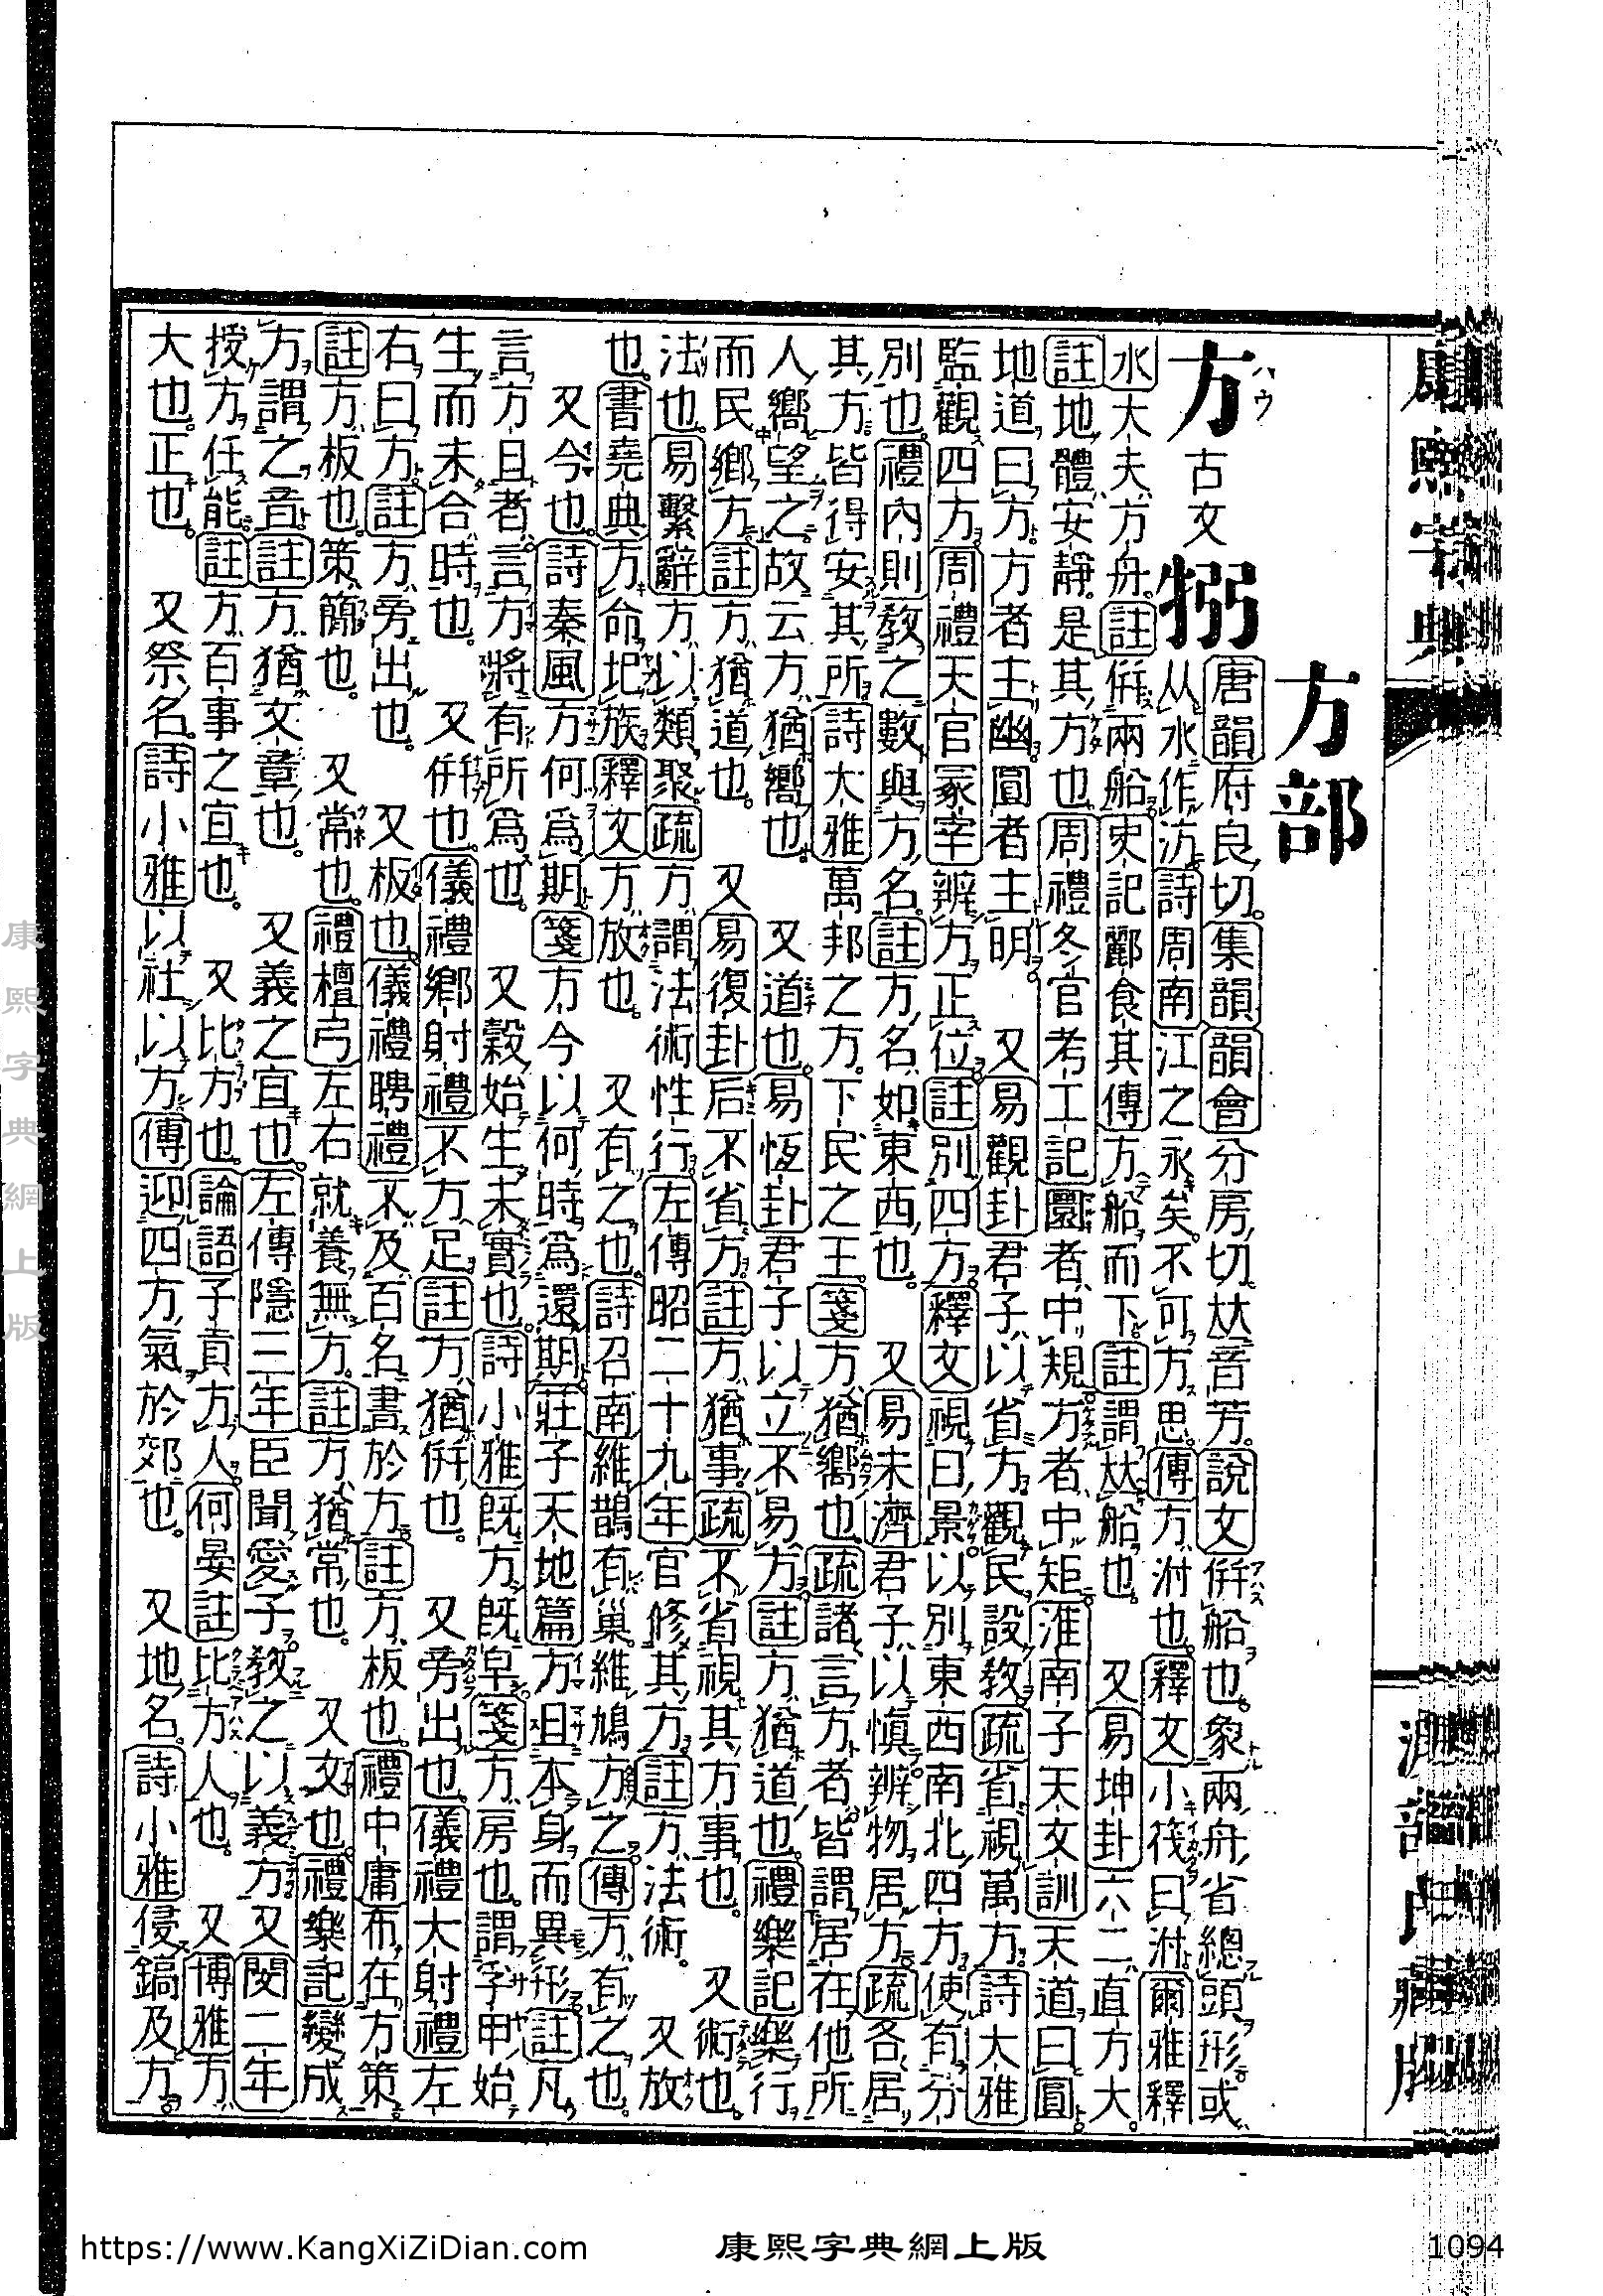 康熙字典
方部
方 古文 𣃙 唐韻府良切集韻韻會分房切𠀤音芳說文倂船也象兩舟省總頭形或
从水作汸詩周南江之永矣不可方思傳方泭也釋文小筏曰泭爾雅釋
水大夫方舟註倂兩船史記酈食其傳方船而下註謂𠀤船也 又易坤卦六二直方大
註地體安靜是其方也周禮冬官考工記圜者中規方者中矩淮南子天文訓天道曰圓
地道曰方方者主幽圓者主明 又易觀卦君子以省方觀民設敎疏省視萬方詩大雅
監觀四方周禮天官冢宰辨方正位註別四方釋文視日景以別東西南北四方使有分
別也禮內則敎之數與方名註方名如東西也 又易未濟君子以愼辨物居方疏各居
其方皆得安其所詩大雅萬邦之方下民之王箋方猶嚮也疏諸言方者皆謂居在他所
人嚮望之故云方猶嚮也 又道也易恆卦君子以立不易方註方猶道也禮樂記樂行
而民鄉方註方猶道也 又易復卦后不省方註方猶事疏不省視其方事也 又術也
法也易繫辭方以類聚疏方謂法術性行左傳昭二十九年官修其方註方法術 又放
也書堯典方命圮族釋文方放也 又有之也詩召南維鵲有巢維鳩方之傳方有之也
又今也詩秦風方何爲期箋方今以何時爲還期莊子天地篇方且本身而異形註凡
言方且者言方將有所爲也 又穀始生未實也詩小雅旣方旣皁箋方房也謂孚甲始
生而未合時也 又倂也儀禮鄉射禮不方足註方猶倂也 又旁出也儀禮大射禮左
右曰方註方旁出也 又板也儀禮聘禮不及百名書於方註方板也禮中庸布在方策
註方板也策簡也 又常也禮檀弓左右就養無方註方猶常也 又文也禮樂記變成
方謂之音註方猶文章也 又義之宜也左傳隱三年臣聞愛子敎之以義方又閔二年
授方任能註方百事之宜也 又比方也論語子貢方人何晏註比方人也 又博雅方
大也正也 又祭名詩小雅以社以方傳迎四方氣於郊也 又地名詩小雅侵鎬及方
康熙字典網上版
https://www.KangXiZiDian.com
康熙字典網上版
1094